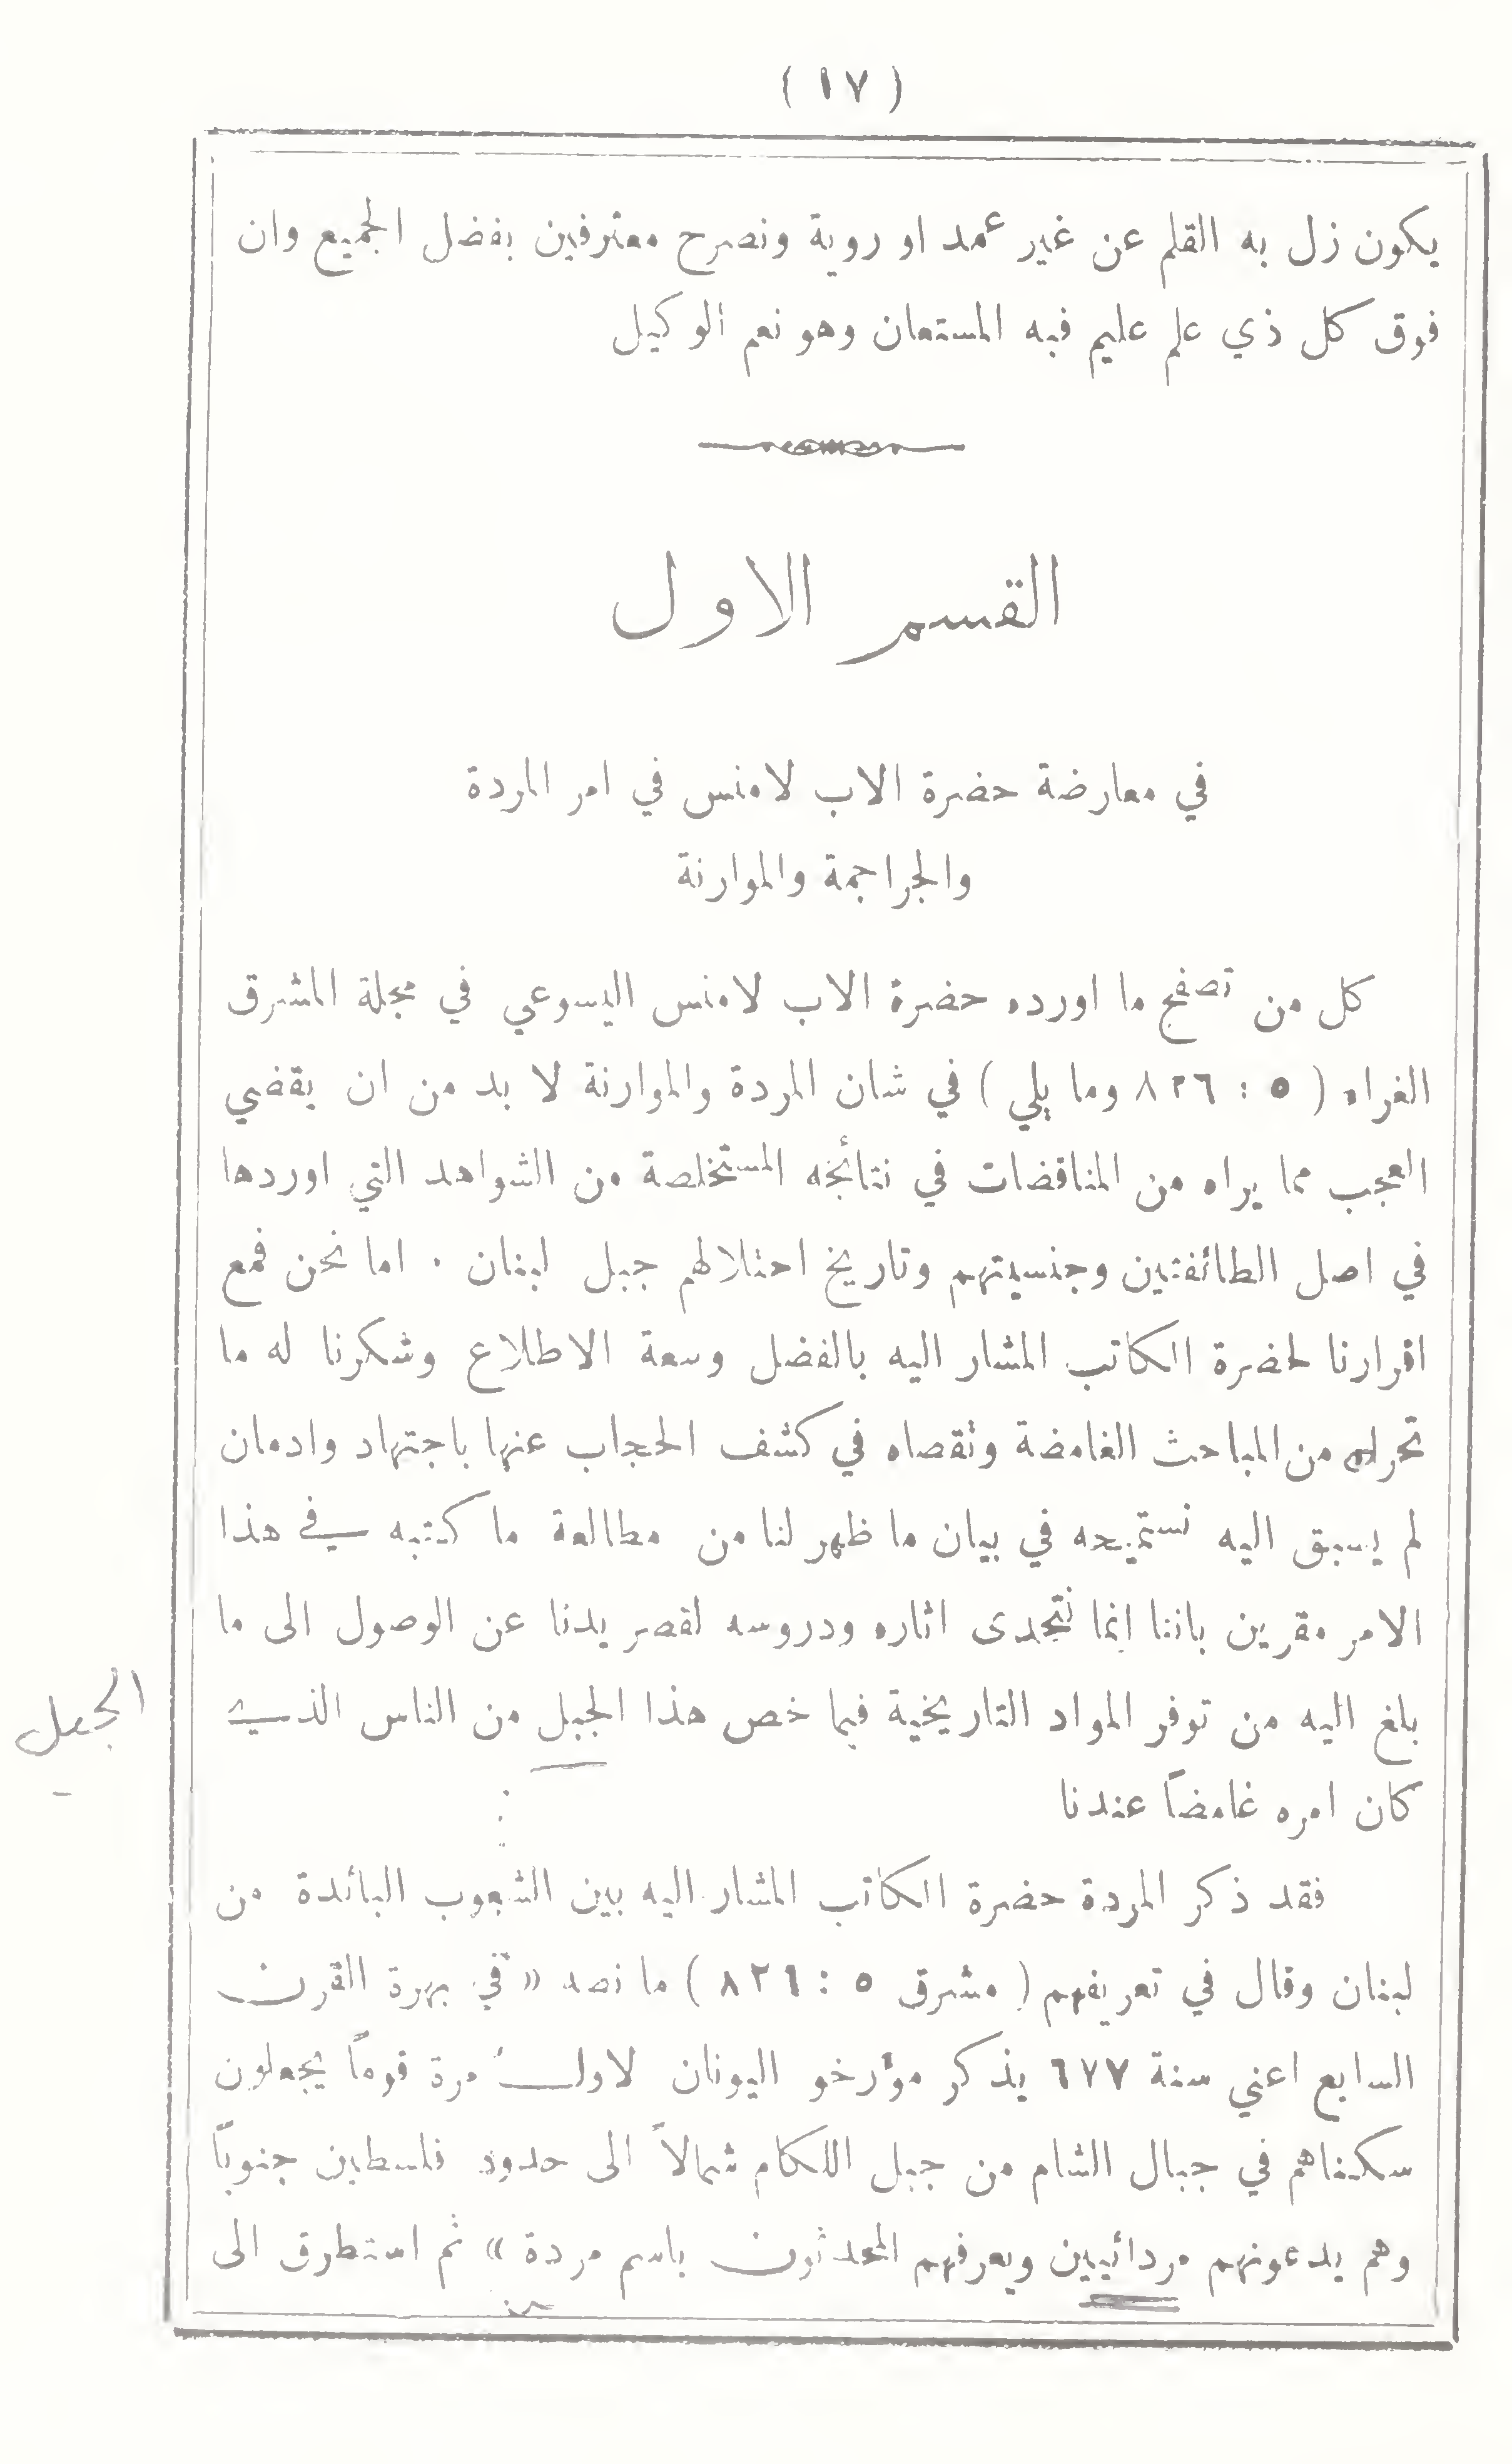 ( ١٧ )
يكون زل به القلم عن غير عمد او روية ونصرح معترفين بفضل الجميع وان
فوق كل ذي علم عليم فبه المستعان وهو نعم الوكيل
القسم الاول
في معارضة حضرة الاب لامنس في امر المردة
والجراجمة والموارنة
كل من تصفح ما اورده حضرة الاب لامنس اليسوعي في مجلة المشرق
الغراء ( ٥ : ٨٢٦ وما يلي ) في شان المردة والموارنة لا بد من ان يقضي
العجب مما يراه من المناقضات في نتائجه المستخلصة من الشواهد التي اوردها
في اصل الطائفتين وجنسيتهم وتاريخ احتلالهم جبل لبنان . اما نحن فمع
اقرارنا لحضرة الكاتب المشار اليه بالفضل وسعة الاطلاع وشكرنا له ما
تحراه من المباحث الغامضة وتقصاه في كشف الحجاب عنها باجتهاد وادمان
لم يسبق اليه نستميحه في بيان ما ظهر لنا من مطالعة ما كتبه في هذا
الامر مقرين باننا انما نتحدى اثاره ودروسه لقصر يدنا عن الوصول الى ما
بلغ اليه من توفر المواد التاريخية فيما خص هذا الجبل من الناس الذي
الجبل
كان امره غامضاً عندنا
فقد ذكر المردة حضرة الكاتب المشار اليه بين الشعوب البائدة من
لبنان وقال في تعريفهم ( مشرق ٥ : ٨٢٦ ) ما نصه « في بهرة القرن
السابع اعني سنة ٦٧٧ يذكر مؤرخو اليونان لاول مرة قوماً يجعلون
سكناهم في جبال الشام من جبل اللكام شمالاً الى حدود فلسطين جنوباً
وهم يدعونهم مردائيين ويعرفهم المحدثون باسم مردة » ثم استطرق الى